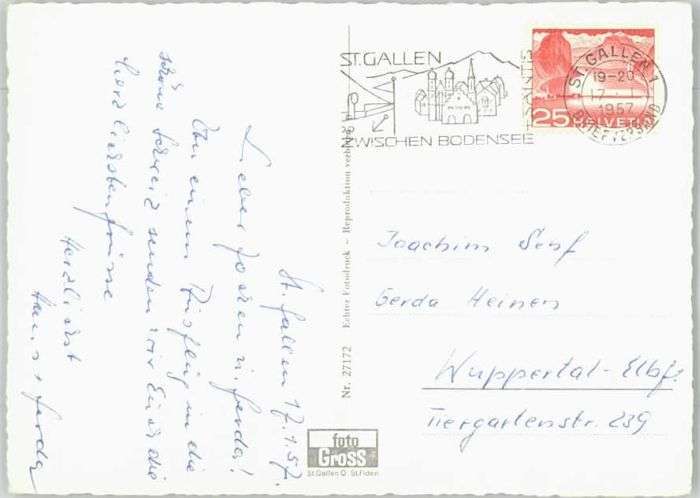 St. Gallen 17.1.57.
Lieber Jochen u. Gerda!
Von einem Ausflug in die
schöne Schweiz senden wir Euch die
herzlichsten Grüsse
Herzlichst
Hans + Gerda
ST. GALLEN
ZWISCHEN BODENSEE
SÄNTIS
ST. GALLEN 1
19-20
1957
BRIEFVERSAND
25 HELVETIA
Joachim
Gerda Heinen
Wuppertal-Elbf.
Tiergartenstr. 239
Nr. 27172 Echter Fotodruck – Reproduktion verboten
foto
Gross
St.Gallen O St.Fiden